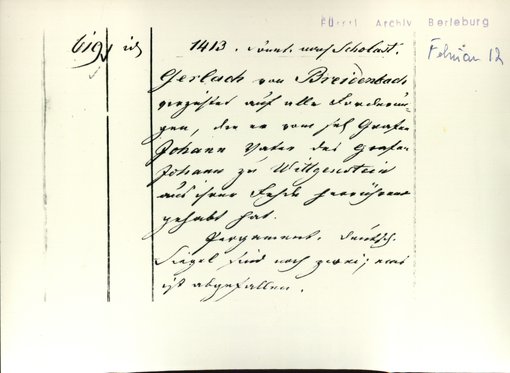 Fürstl Archiv Berleburg
Februar 12
1413. Sonnt. nach Scholast.
Gerlach von Breidenbach
verzichtet auf alle Forderun-
gen, die er vom sel. Grafen
Johann Vater des Grafen
Johann zu Wittgenstein
aus ihrer Fehde herrührend
gehabt hat.
Pergament. deutsch.
Siegel sind noch zwei; eins
ist abgefallen.